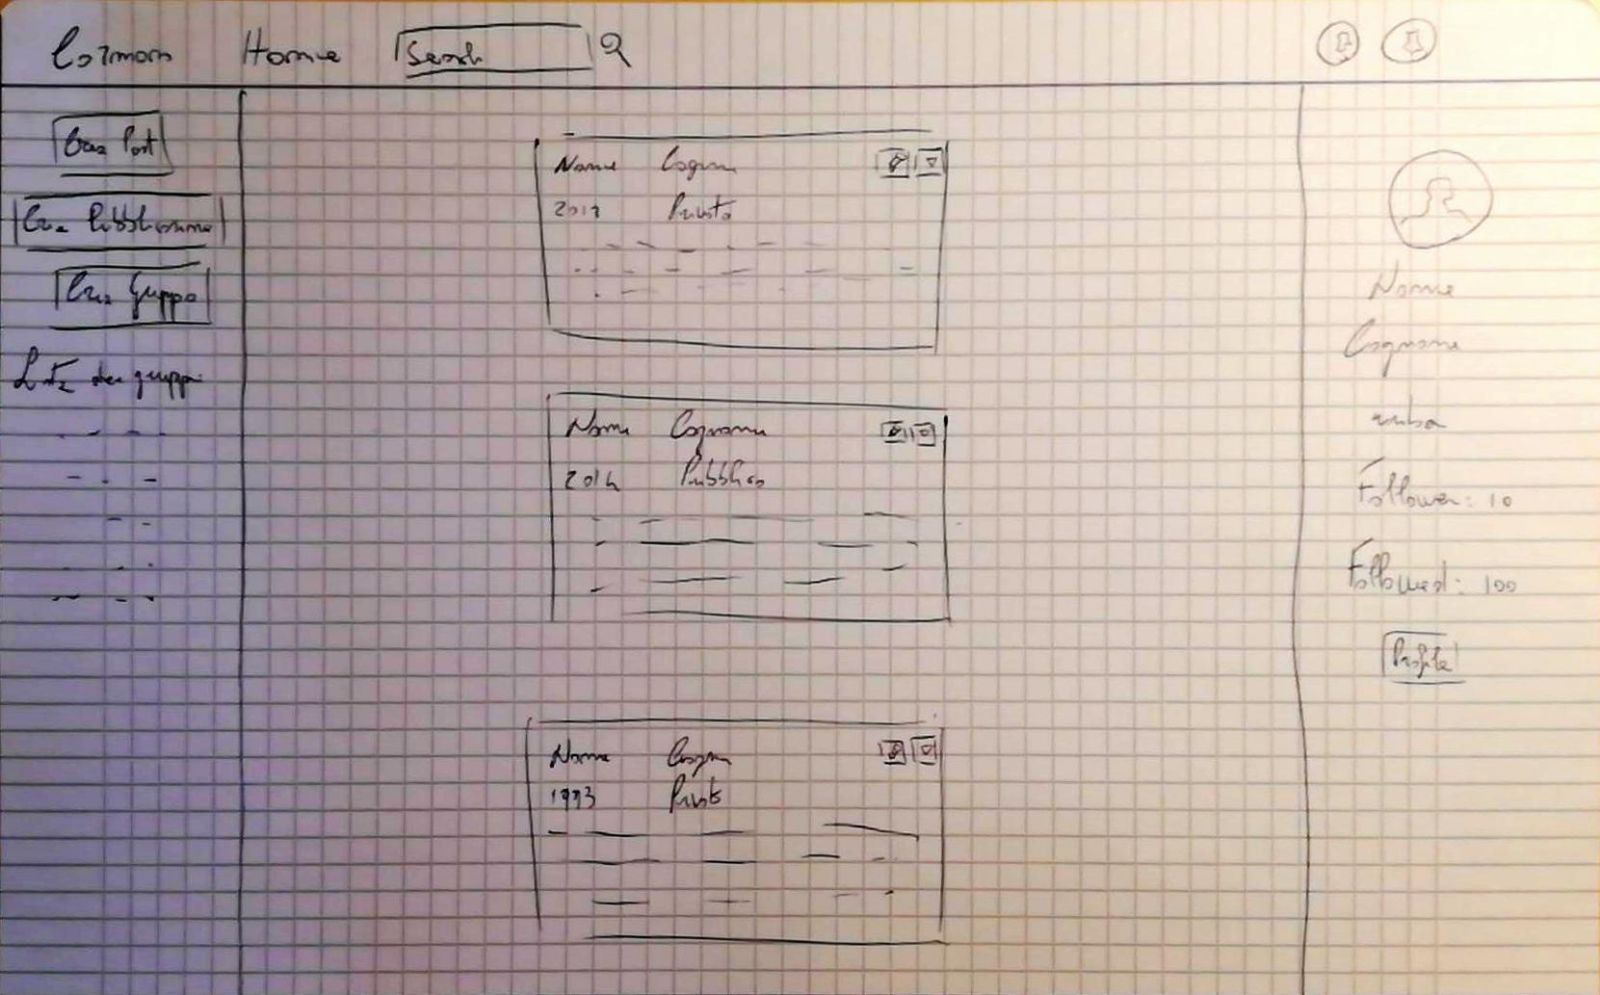 Cormor Home Search
Crea Post
Crea Pubblicazione
Crea Gruppo
Lista dei gruppi
Nome Cognome
Privato
Nome Cognome
2014 Pubblico
Nome Cognome
1993 Privato
Nome
Cognome
Follower: 10
Followed: 100
Profile